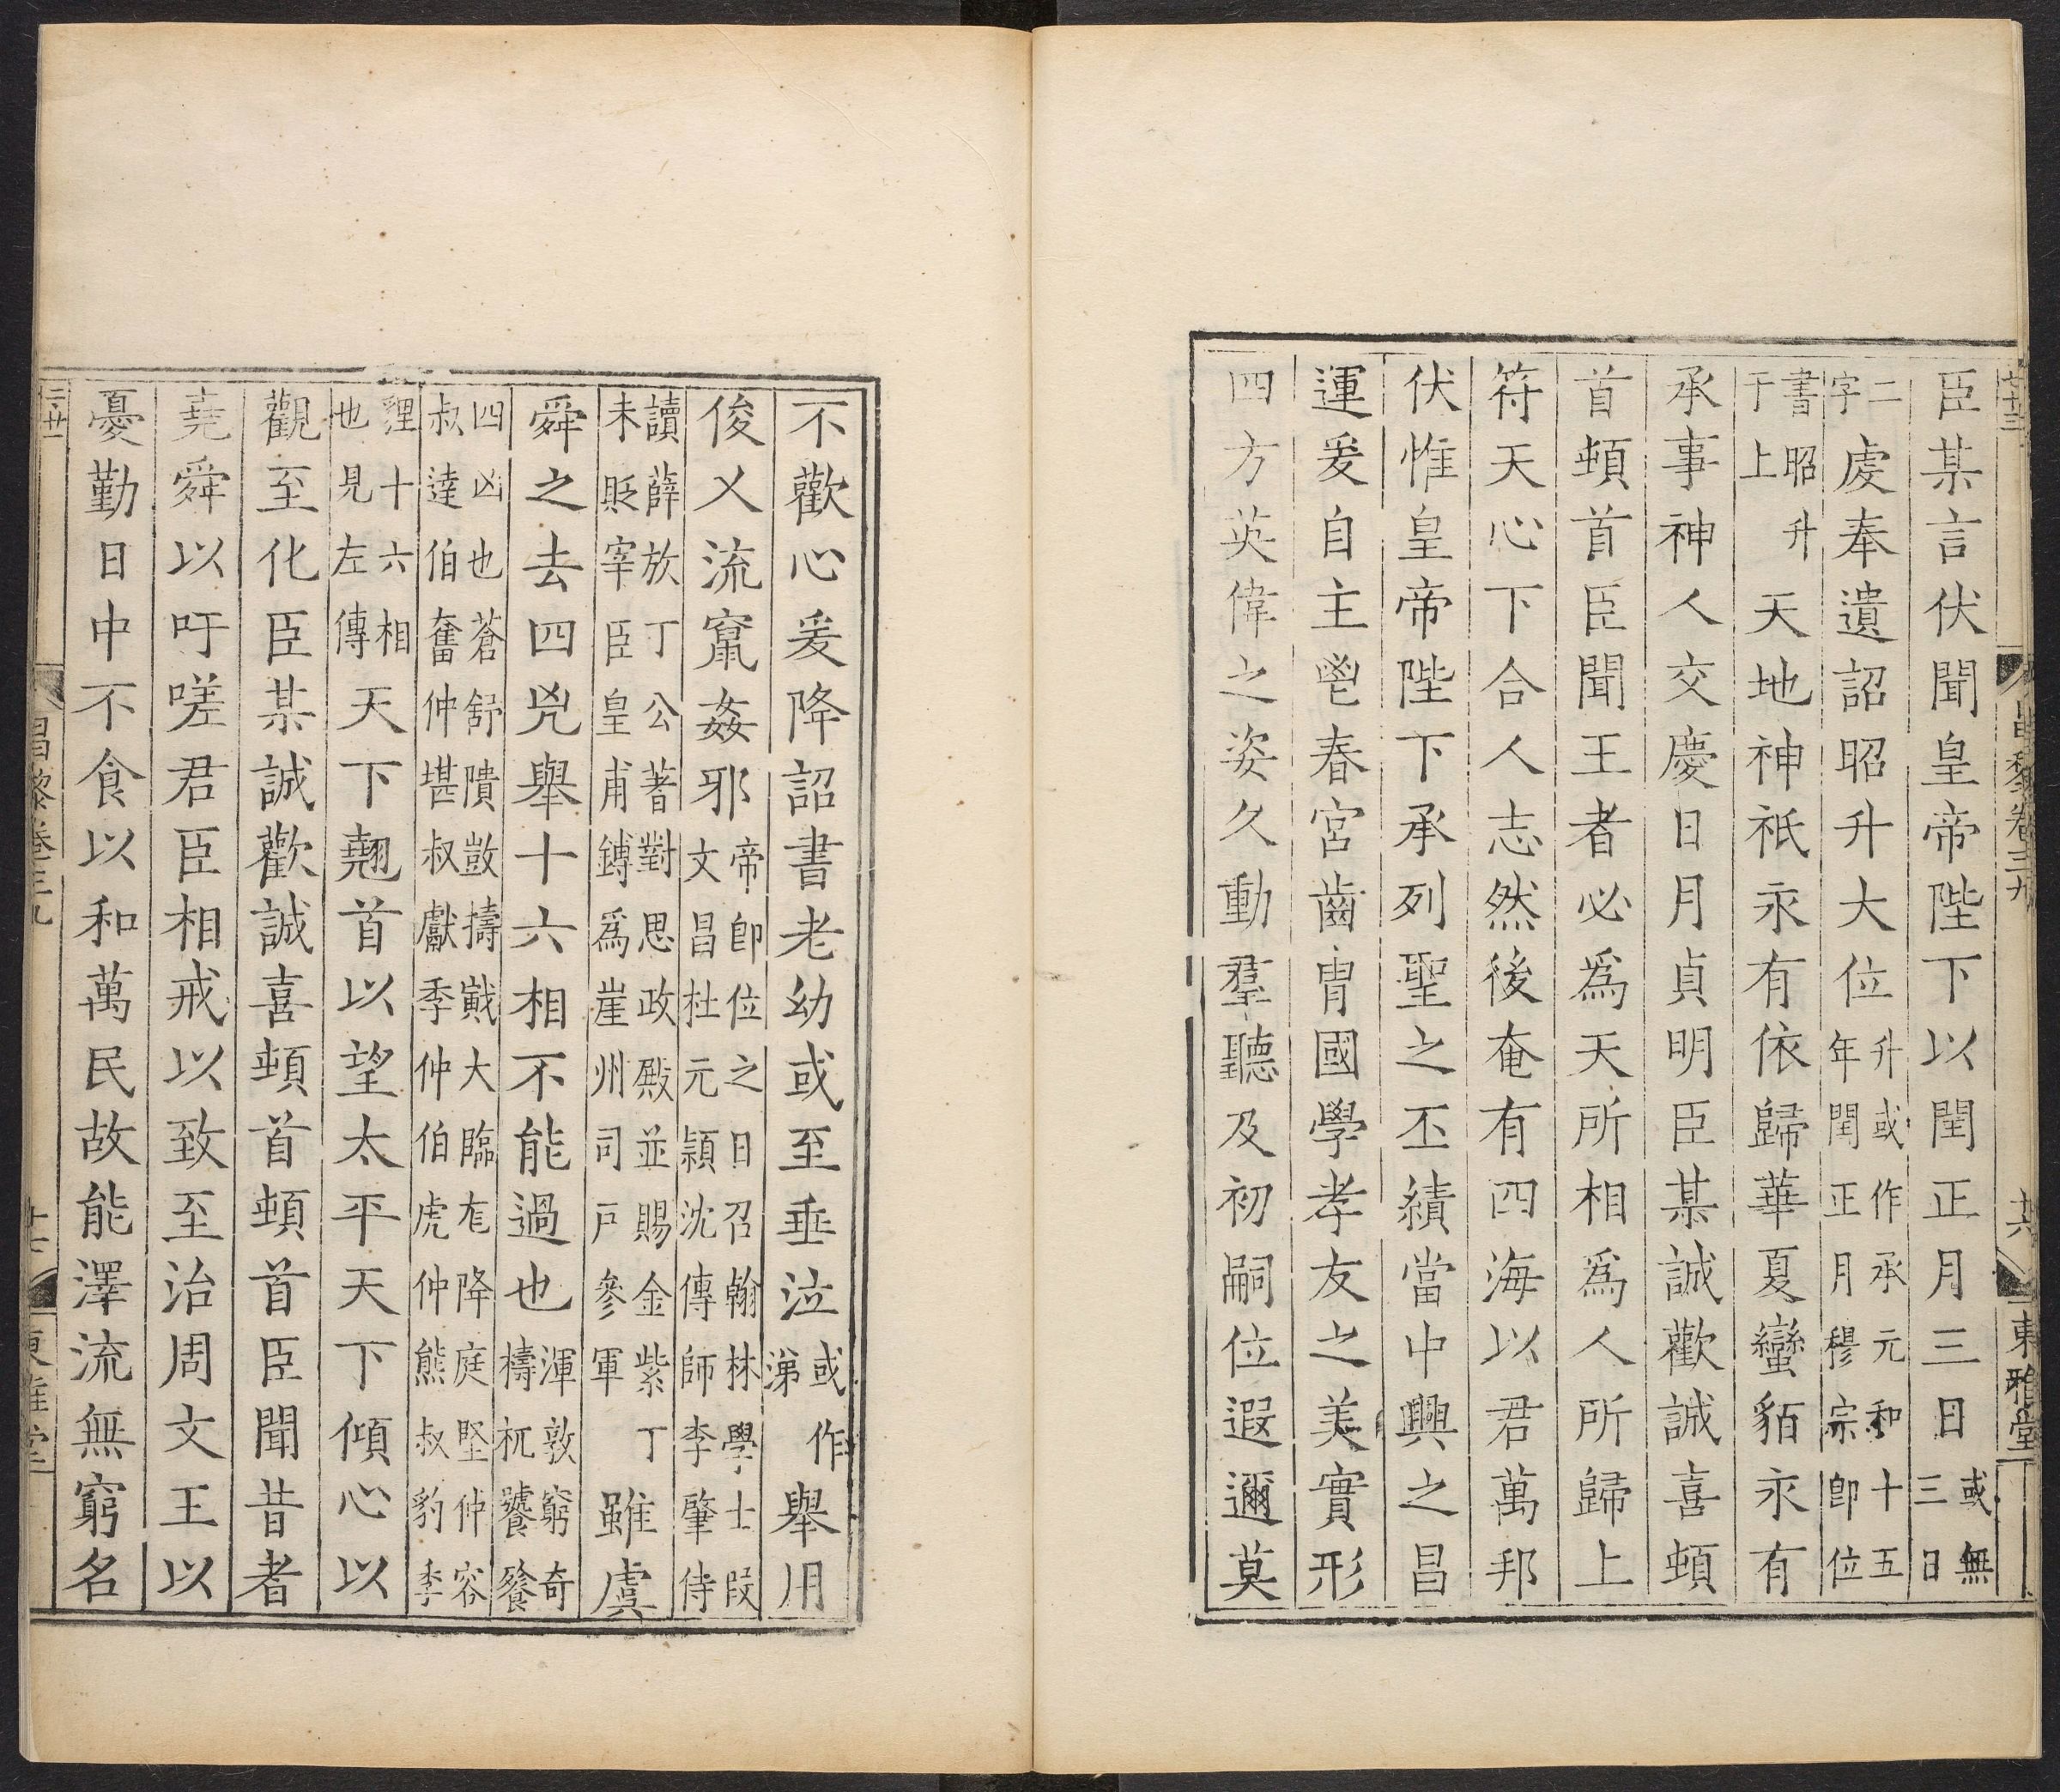 昌黎卷三九
東雅堂
臣某言伏聞皇帝陛下以閏正月三日或無三日
二字處奉遺詔昭升大位升或作承元和十五年閏正月穆宗卽位
書昭升于上天地神祇永有依歸華夏蠻貊永有
承事神人交慶日月貞明臣某誠歡誠喜頓
首頓首臣聞王者必爲天所相爲人所歸上
符天心下合人志然後奄有四海以君萬邦
伏惟皇帝陛下承列聖之丕績當中興之昌
運爰自主鬯春宮齒冑國學孝友之美實形
四方英偉之姿久動羣聽及初嗣位遐邇莫
不歡心爰降詔書老幼或至垂泣或作涕舉用
俊乂流竄姦邪帝卽位之日召翰林學士段文昌杜元穎沈傳師李肇侍
讀薛放丁公著對思政殿並賜金紫丁未貶宰臣皇甫鎛爲崖州司戶參軍雖虞
舜之去四兇舉十六相不能過也渾敦窮奇檮杌饕餮
四凶也蒼舒隤敳擣戭大臨尨降庭堅仲容叔達伯奮仲堪叔獻季仲伯虎仲熊叔豹季
貍十六相也見左傳天下翹首以望太平天下傾心以
觀至化臣某誠歡誠喜頓首頓首臣聞昔者
堯舜以吁嗟君臣相戒以致至治周文王以
憂勤日中不食以和萬民故能澤流無窮名
昌黎卷三九
東雅堂